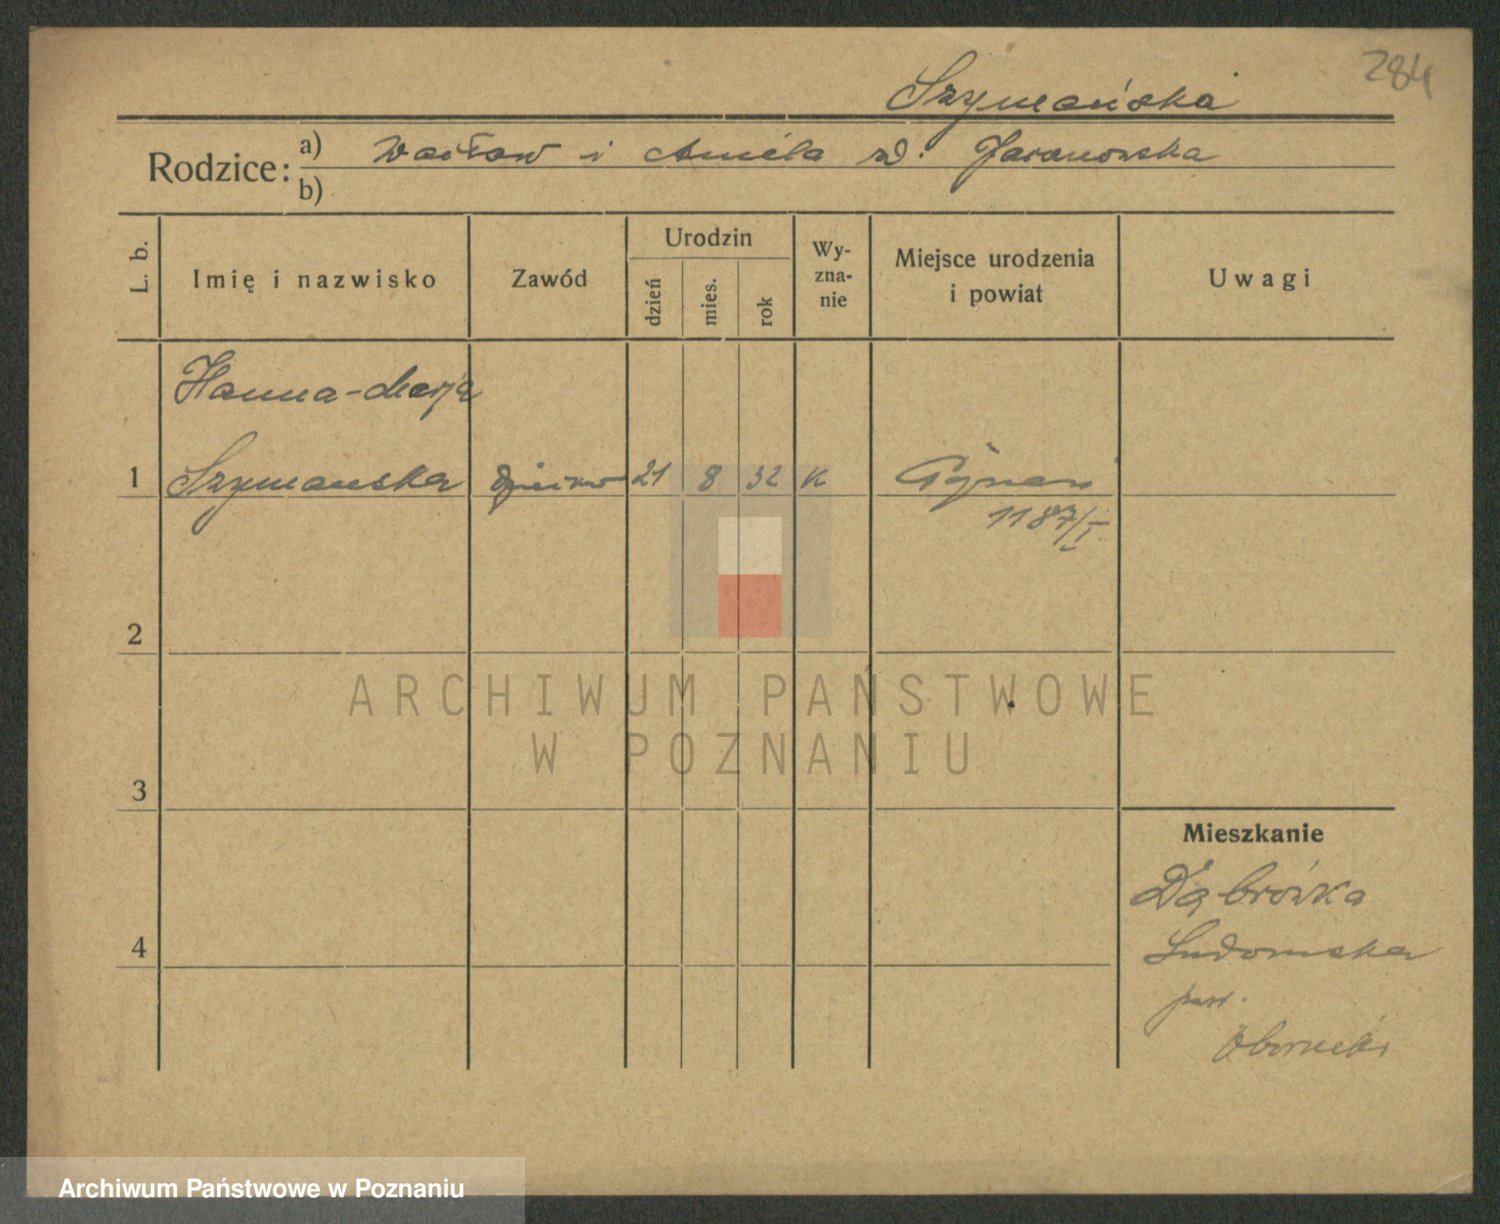 284
Szymańska
Rodzice: a) Wacław i Aniela z d. Jaranowska
b)
L. b. Imię i nazwisko Zawód Urodzin dzień mies. rok Wy-zna-nie Miejsce urodzenia i powiat Uwagi
Hanna-Marja
1 Szymanska 21 8 32 K Poznań
1187/I
2
ARCHIWUM PAŃSTWOWE
W POZNANIU
3
Mieszkanie
Dąbrówka
4 Ludomska
pow.
Obornicki
Archiwum Państwowe w Poznaniu